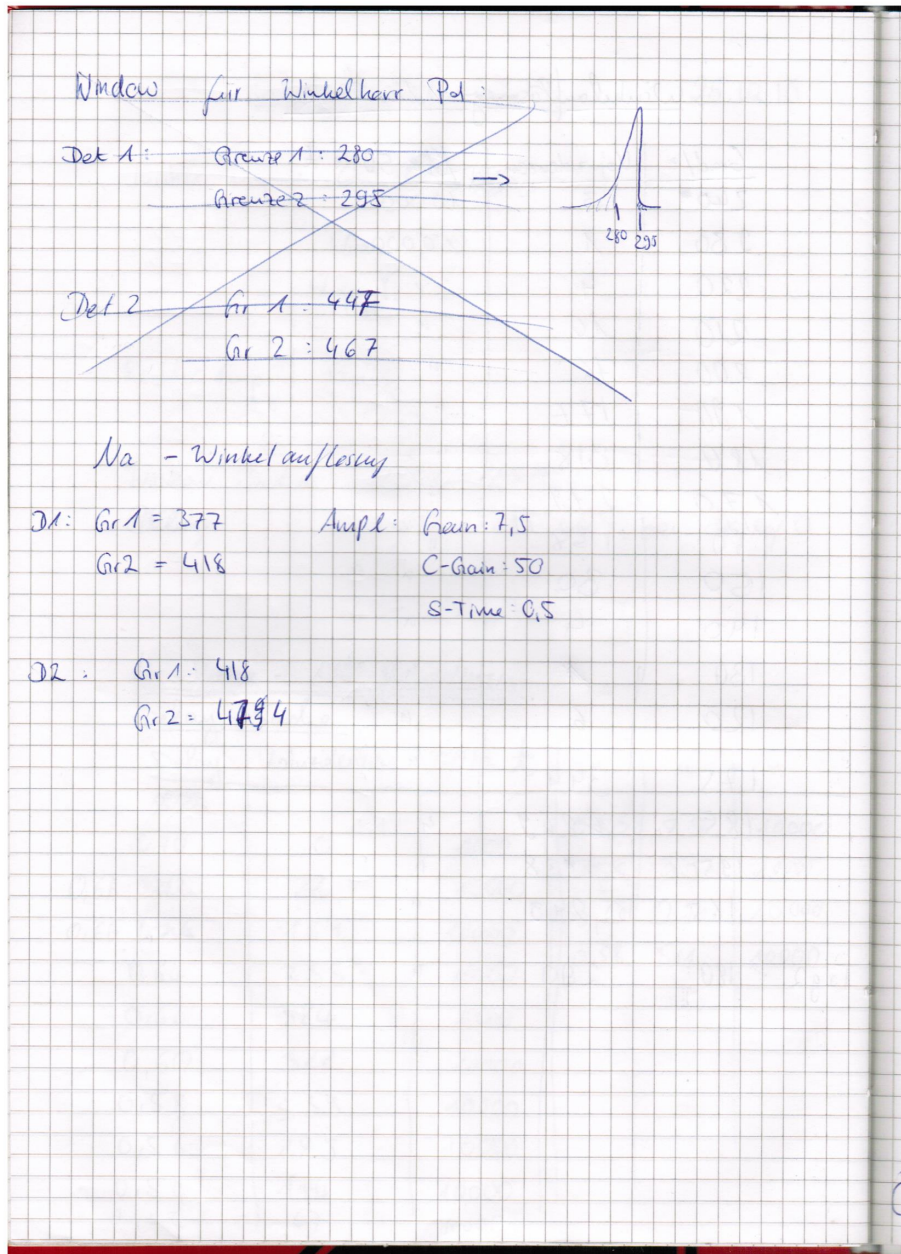 Window für Winkelkorr Pol:
Det 1: Grenze 1: 280
Grenze 2: 295
→
280 295
Det 2 Gr 1: 447
Gr 2: 467
Na - Winkelauflösung
D1: Gr 1 = 377 Ampl: Gain: 7,5
Gr 2 = 418 C-Gain: 50
S-Time: 0,5
D2: Gr 1: 418
Gr 2 =